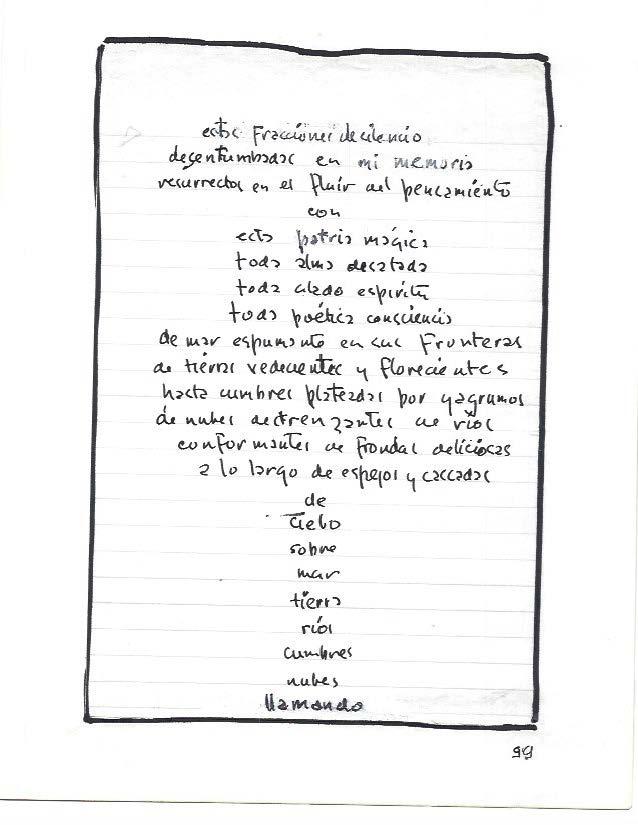 estas fracciones de silencio
desentumbadas en mi memoria
resurrectos en el fluir del pensamiento
con
esta patria mágica
toda alma desatada
toda alado espíritu
toda poética consciencia
de mar espumante en sus fronteras
de tierras verdecientes y florecientes
hasta cumbres plateadas por yagrumos
de nubes destrenzantes de ríos
conformantes de frondas deliciosas
a lo largo de espejos y cascadas
de
cielo
sobre
mar
tierra
ríos
cumbres
nubes
llamando
99